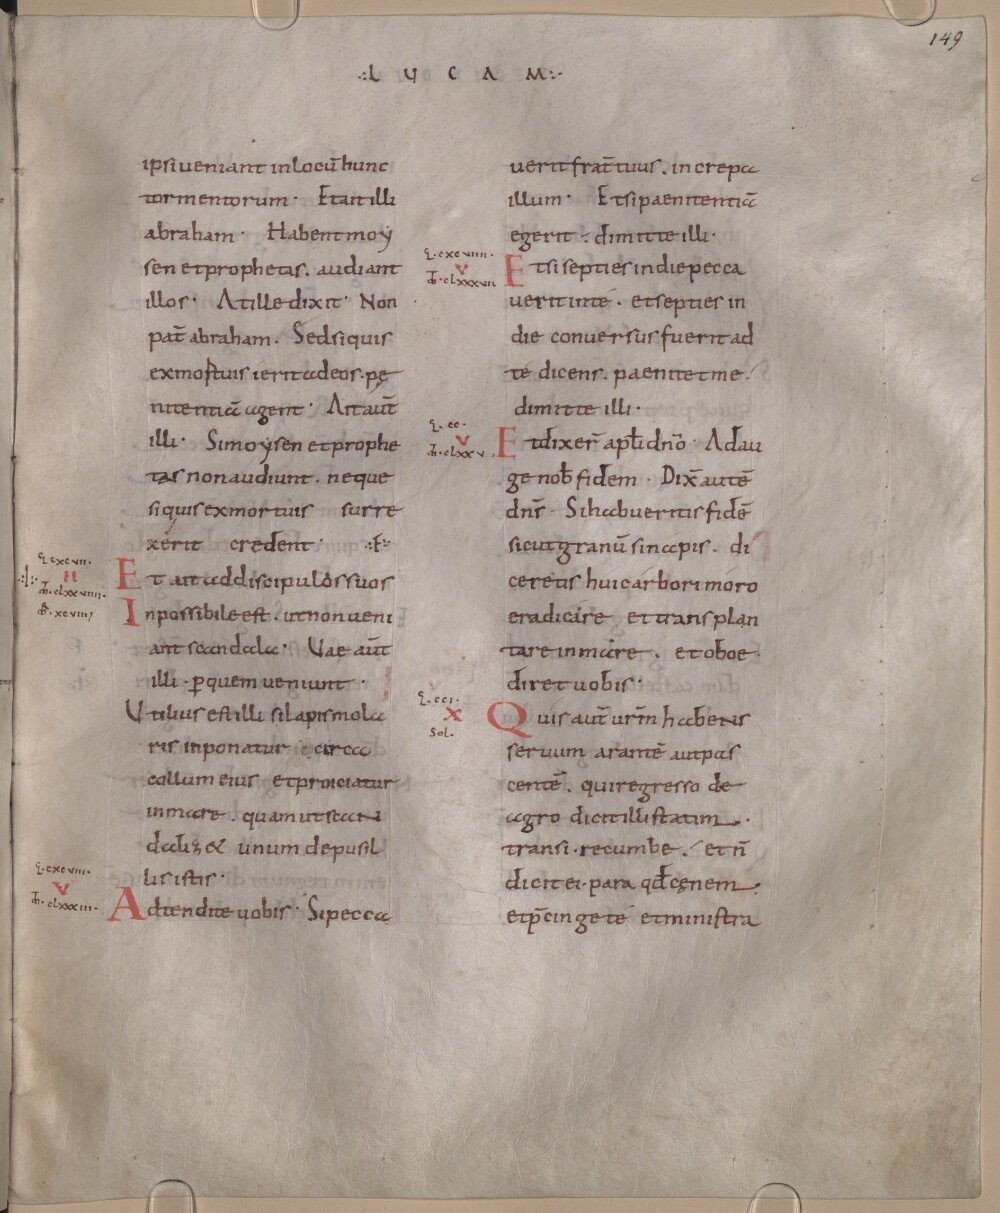 149
·:L V C A M:·
ipsi ueniant in locū hunc
tormentorum · Et ait illi
abraham · Habent moy
sen et prophetas . audiant
illos · At ille dixit · Non
pat̄ abraham . Sed si quis
ex mortuis ierit ad eos . pę
nitentiā agent · Ait aūt
illi · Si moysen et prophe
tas non audiunt . neque
si quis ex mortuis surre
xerit credent ·
Et ait ad discipulos suos
Inpossibile est . ut non ueni
ant scandala · Uae aūt
illi . ꝑ quem ueniunt ·
Utilius est illi si lapis mola
ris inponatur circa
collum eius et proiciatur
in mare . quam ut scan
dalizet unum de pusil
lis istis ·
Adtendite uobis · Si pecca
uerit frat̄ tuus . increpa
illum · Et si paenitentiā
egerit . dimitte illi ·
Et si septies in die pecca
uerit in te . et septies in
die conuersus fuerit ad
te dicens . paenitet me .
dimitte illi ·
Et dixer̄ apłi dn̄o · Adau
ge nob̄ fidem · Dix̄ autē
dn̄s · Si habueritis fidē
sicut granū sinapis . di
ceretis huic arbori moro
eradicare et transplan
tare in mare . et oboe
diret uobis ·
Quis aut̄ ur̄m habens
seruum arantē aut pas
centē . qui regresso de
agro dicit illi statim .
transi . recumbe . et n̄
dicit ei . para qđ cęnem .
et p̄cinge te et ministra
l · cxcviiii ·
V
l · cc ·
V
l · cci ·
X
sol ·
l · cxcvii ·
l · cxcviii ·
V